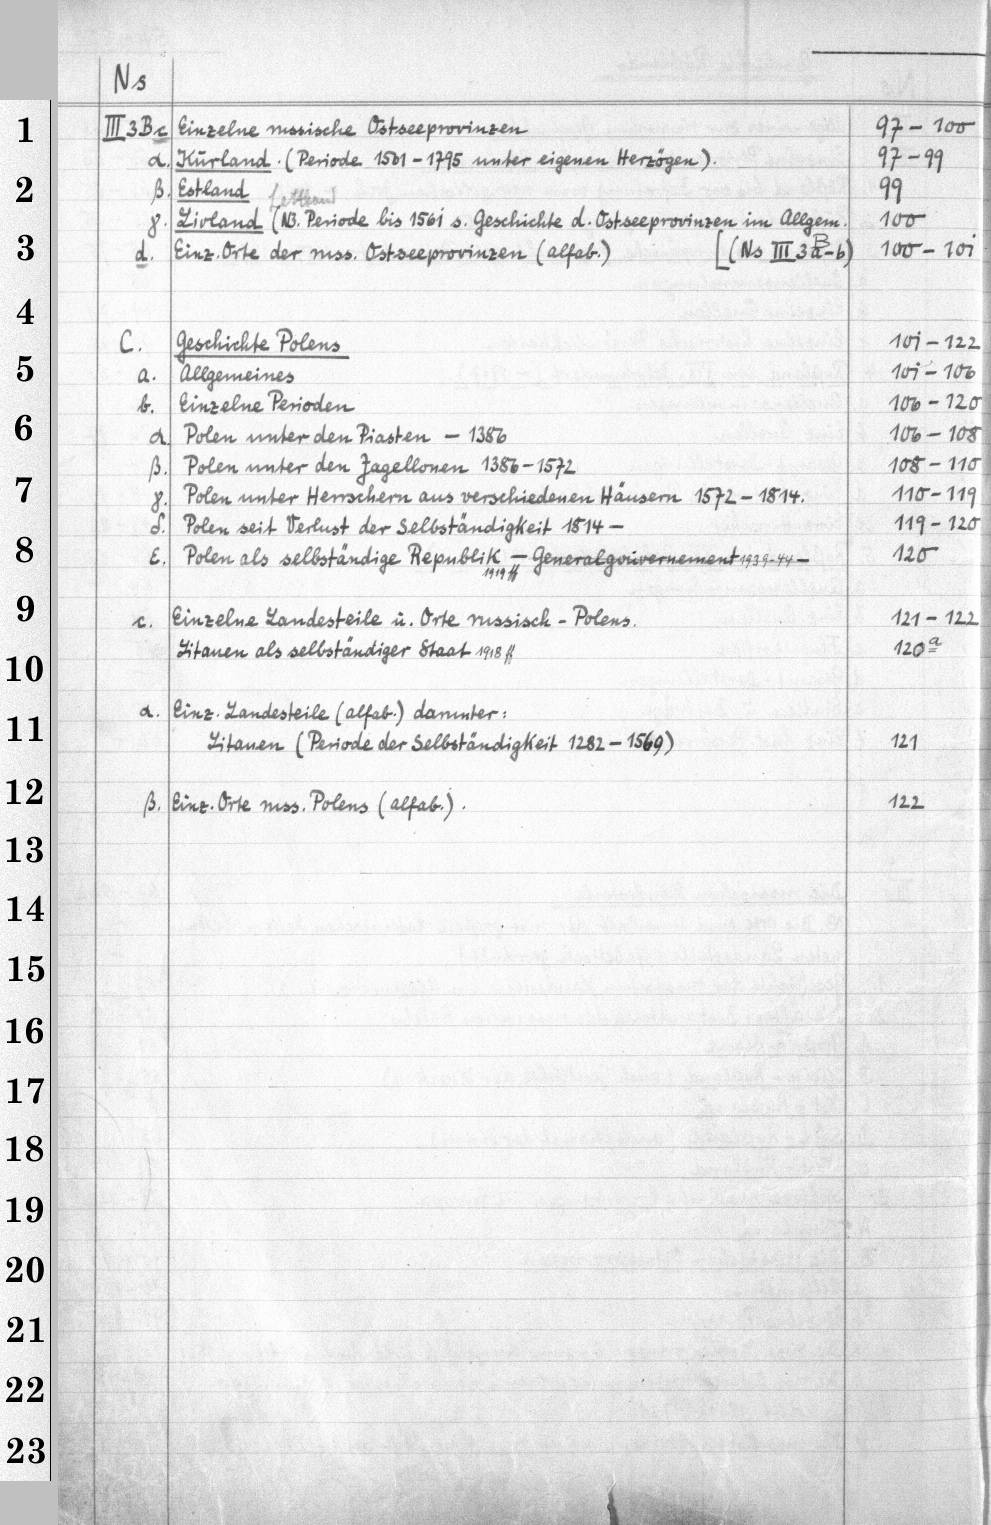 Ns
1 III 3Bc Einzelne russische Ostseeprovinzen 97 – 100
α. Kurland. (Periode 1561 – 1795 unter eigenen Herzögen). 97 – 99
2 β. Estland Lettland 99
γ. Livland (NB. Periode bis 1561 s. Geschichte d. Ostseeprovinzen im Allgem. 100
3 d. Einz. Orte der russ. Ostseeprovinzen (alfab.) [(Ns III 3 B a–b) 100 – 101
4
C. Geschichte Polens 101 – 122
5 a. Allgemeines 101 – 106
b. Einzelne Perioden 106 – 120
6 α. Polen unter den Piasten – 1386 106 – 108
β. Polen unter den Jagellonen 1386 – 1572 108 – 110
7 γ. Polen unter Herrschern aus verschiedenen Häusern 1572 – 1814. 110 – 119
δ. Polen seit Verlust der Selbständigkeit 1814 – 119 – 120
8 ε. Polen als selbständige Republik – Generalgouvernement 1939-44 – 120
1919 ff
9 c. Einzelne Landesteile u. Orte russisch - Polens. 121 – 122
Litauen als selbständiger Staat 1918 ff 120 a
10
11 α. Einz. Landesteile (alfab.) darunter:
Litauen (Periode der Selbständigkeit 1282 – 1569) 121
12 β. Einz. Orte russ. Polens (alfab.). 122
13
14
15
16
17
18
19
20
21
22
23